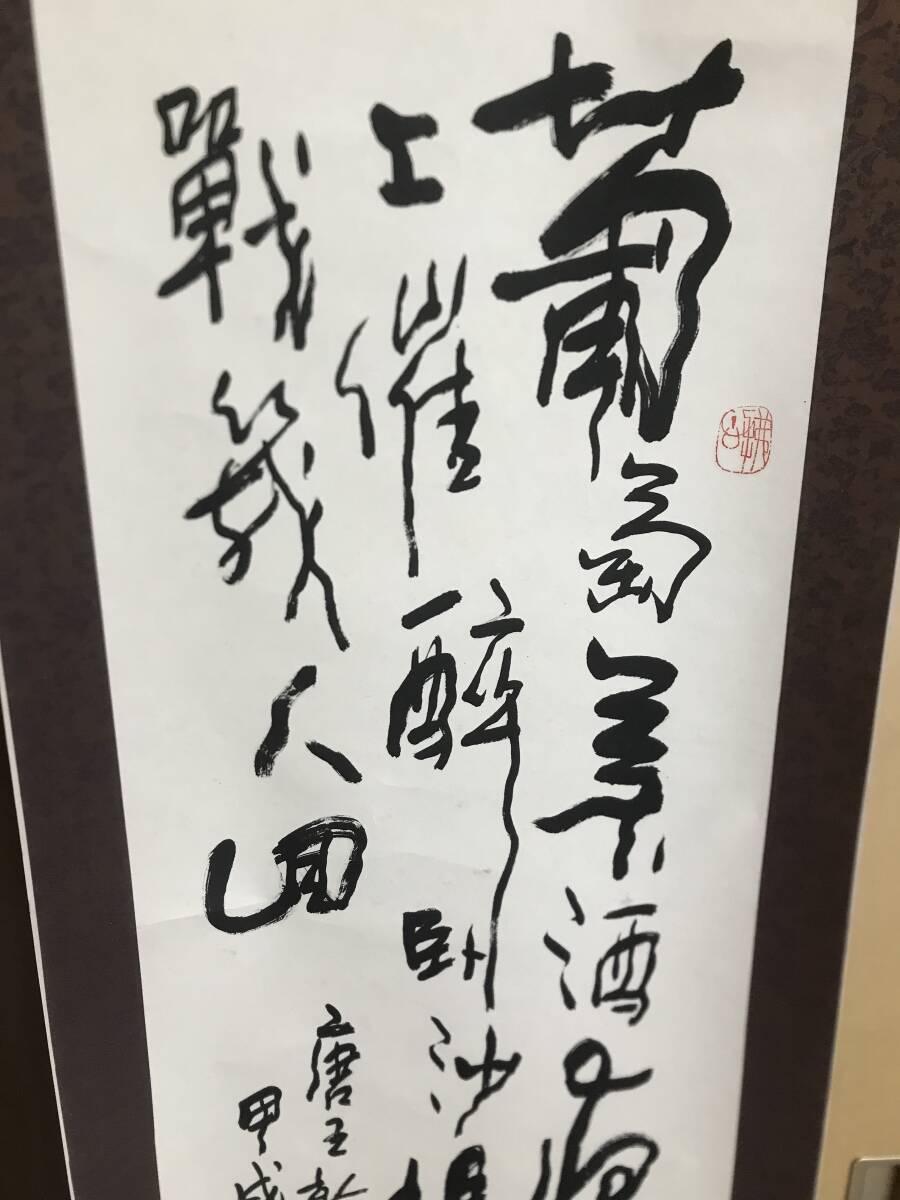 葡萄美酒夜
上催醉臥沙場
戰幾人回
唐王翰
甲戌